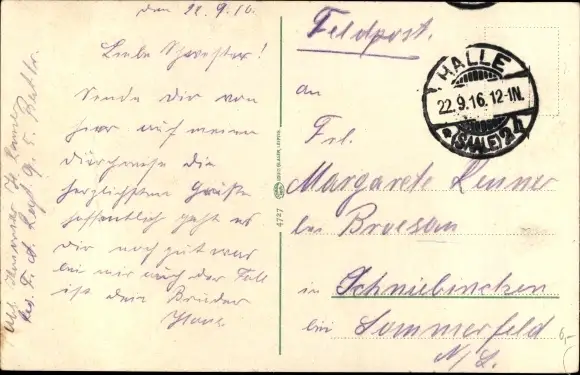 den 22.9.16.
Liebe Schwester!
Sende Dir von
hier auf meiner
Durchreise die
herzlichsten Grüße
hoffentlich geht es
Dir noch gut was
bei mir auch der Fall
ist dein Bruder
Res. F. A. Regt. 9. 5. Battr.
4727
Feldpost.
HALLE
22.9.16.12-1N.
*(SAALE)2
an
Frl.
Margarete Lenner
bei Broesan
in Schniebinchen
bei Sommerfeld
N/L.